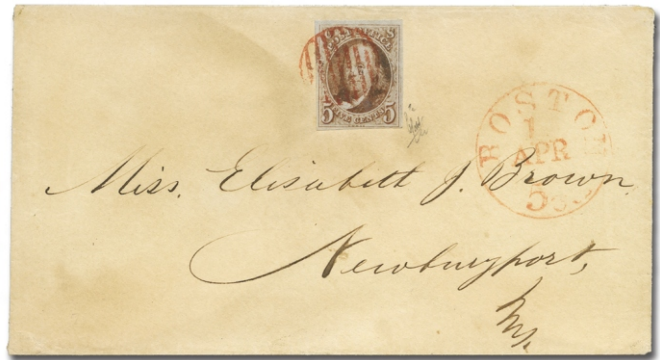 5 5
BOSTON
1
APR
5cts
Miss. Elisabeth J. Brown,
Newburyport,
Ms.